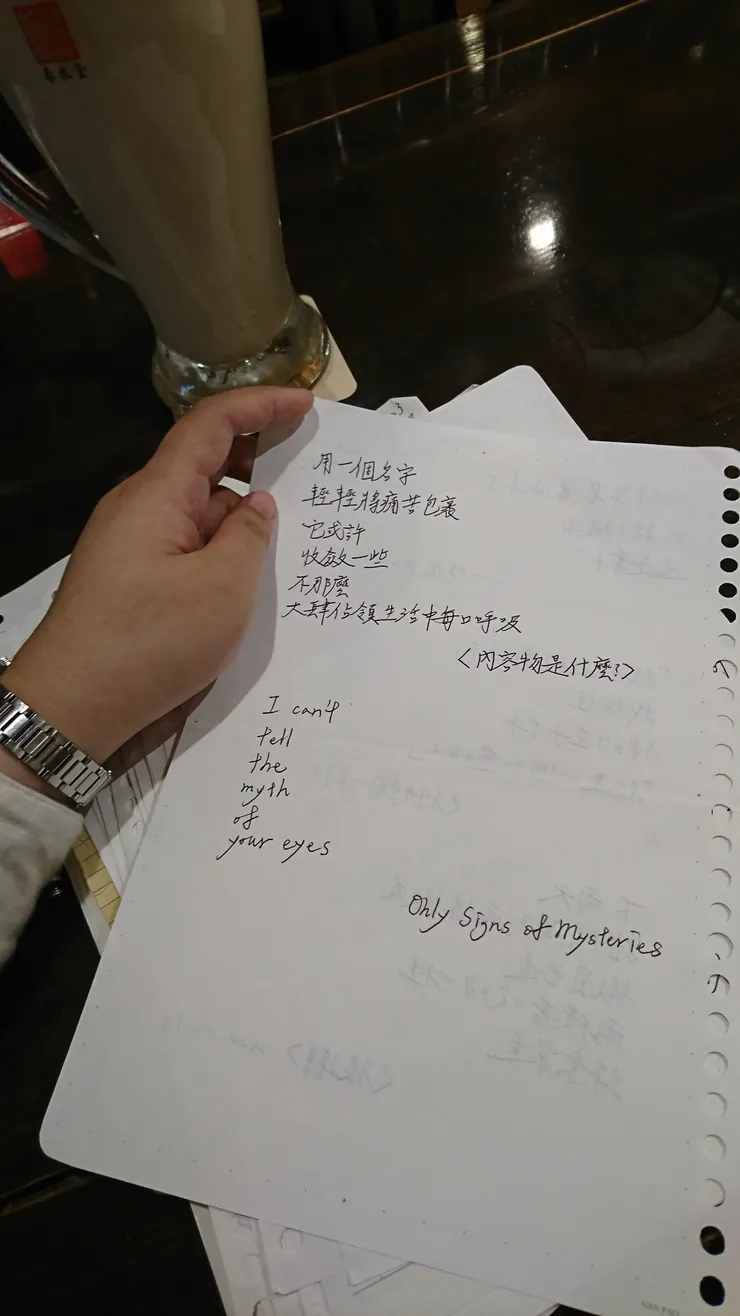 春水堂
用一個名字
輕輕將痛苦包裹
它或許
收斂一些
不那麼
大肆佔領生活中每口呼吸
〈內容物是什麼?〉
I can't
tell
the
myth
of
your eyes
Only Signs of Mysteries